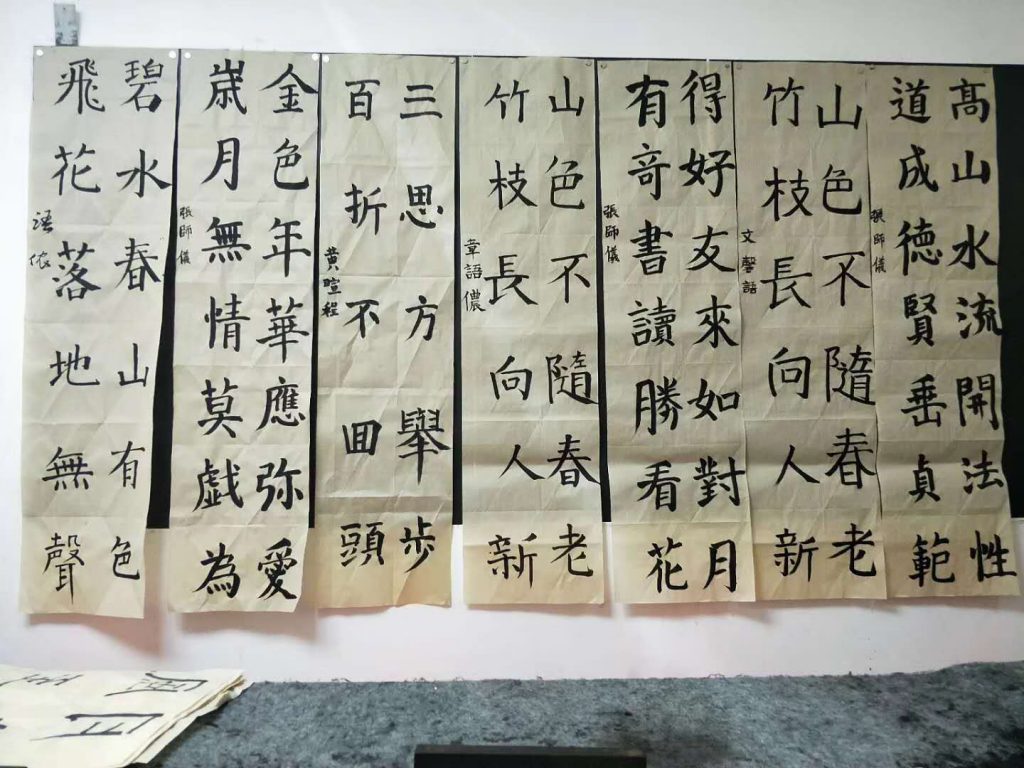 高山水流開法性
道成德賢垂貞範
張師儀
山色不隨春老
竹枝長向人新
文馨語
得好友來如對月
有奇書讀勝看花
張師儀
山色不隨春老
竹枝長向人新
韋語儂
三思方舉步
百折不回頭
黃暄程
金色年華應弥愛
歲月無情莫戯為
張師儀
碧水春山有色
飛花落地無聲
語儂